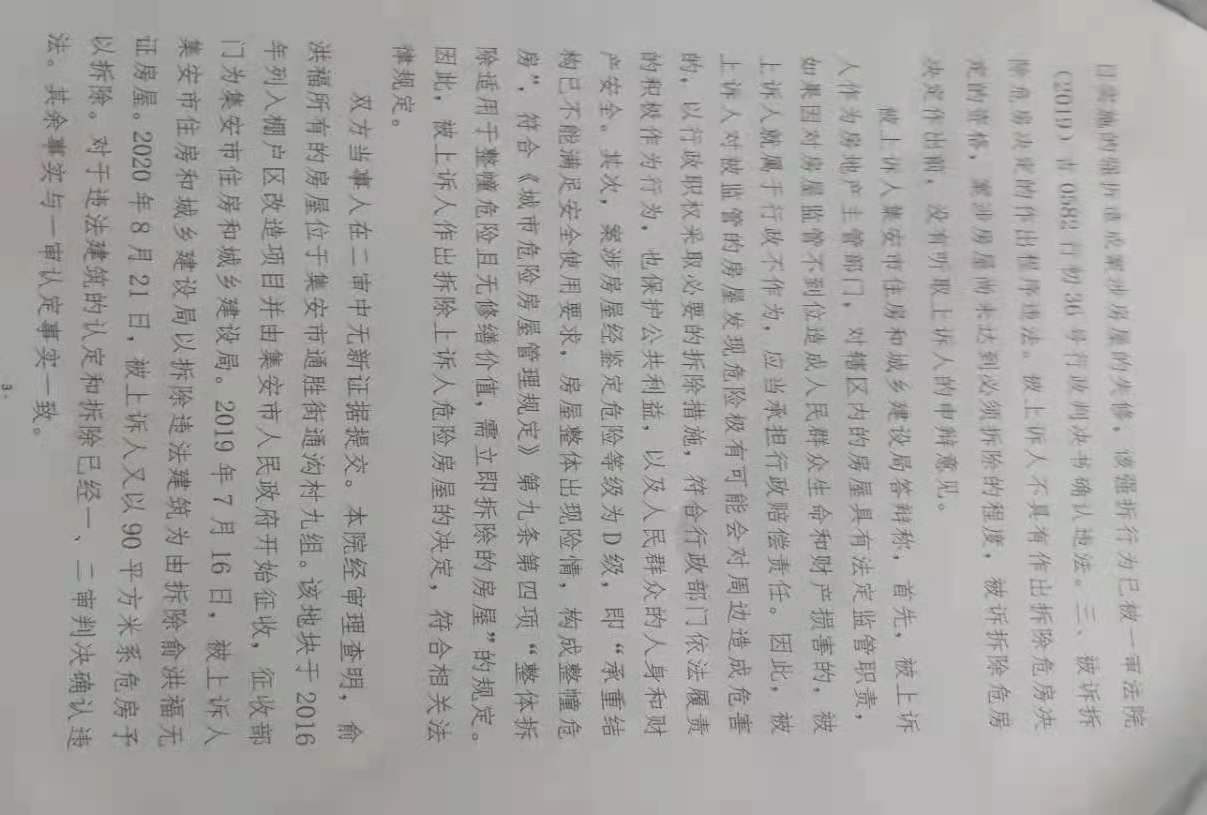 日实施的强拆造成案涉房屋的失修，该强拆行为已被一审法院
（2019）吉 0582 行初 36 号行政判决书确认违法。三、被诉拆
除危房决定的作出程序违法。被上诉人不具有作出拆除危房决
定的资格，案涉房屋尚未达到必须拆除的程度，被诉拆除危房
决定作出前，没有听取上诉人的申辩意见。
被上诉人集安市住房和城乡建设局答辩称，首先，被上诉
人作为房地产主管部门，对辖区内的房屋具有法定监管职责，
如果因对房屋监管不到位造成人民群众生命和财产损害的，被
上诉人就属于行政不作为，应当承担行政赔偿责任。因此，被
上诉人对被监管的房屋发现危险极有可能会对周边造成危害
的，以行政职权采取必要的拆除措施，符合行政部门依法履责
的积极作为行为，也保护公共利益，以及人民群众的人身和财
产安全。其次，案涉房屋经鉴定危险等级为 D 级，即“承重结
构已不能满足安全使用要求，房屋整体出现险情，构成整幢危
房”，符合《城市危险房屋管理规定》第九条第四项“整体拆
除适用于整幢危险且无修缮价值，需立即拆除的房屋”的规定。
因此，被上诉人作出拆除上诉人危险房屋的决定，符合相关法
律规定。
双方当事人在二审中无新证据提交。本院经审理查明，俞
洪福所有的房屋位于集安市通胜街通沟村九组。该地块于 2016
年列入棚户区改造项目并由集安市人民政府开始征收，征收部
门为集安市住房和城乡建设局。2019 年 7 月 16 日，被上诉人
集安市住房和城乡建设局以拆除违法建筑为由拆除俞洪福无
证房屋。2020 年 8 月 21 日，被上诉人又以 90 平方米系危房予
以拆除。对于违法建筑的认定和拆除已经一、二审判决确认违
法。其余事实与一审认定事实一致。
3